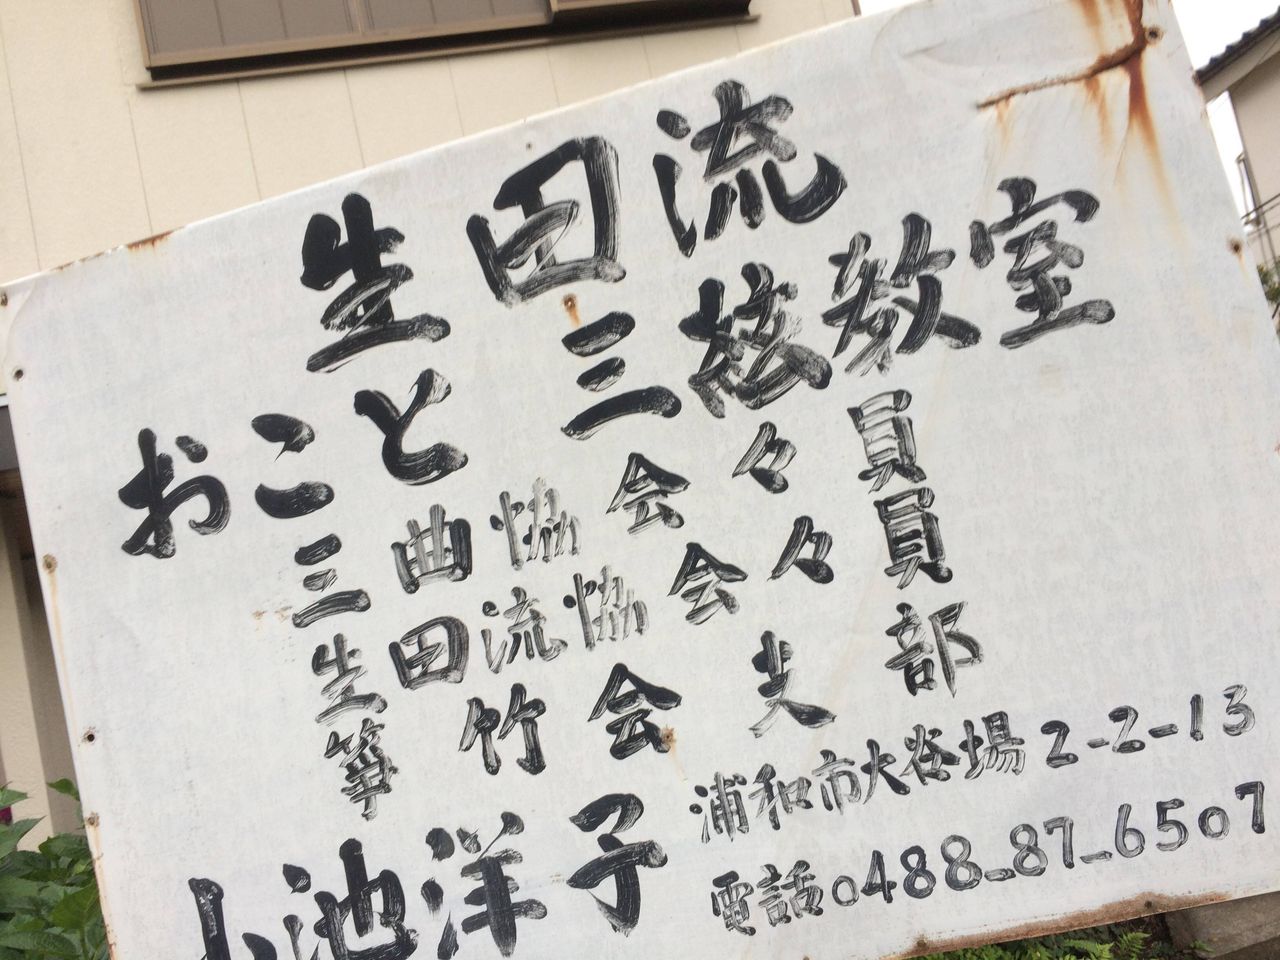 生田流
おこと 三絃教室
三曲協会々員
生田流協会々員
箏竹会支部
小池洋子
浦和市大谷場2-2-13
電話0488-87-6507